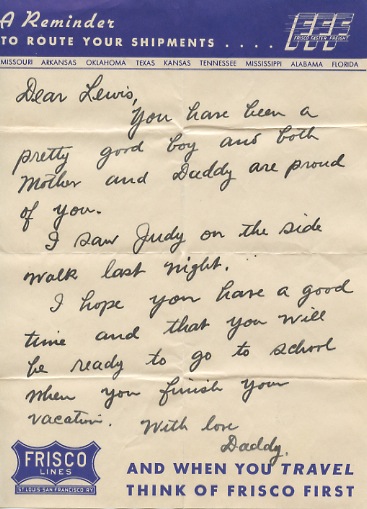 A Reminder
TO ROUTE YOUR SHIPMENTS . . . .
FFF
FRISCO FASTER FREIGHT
MISSOURI ARKANSAS OKLAHOMA TEXAS KANSAS TENNESSEE MISSISSIPPI ALABAMA FLORIDA
Dear Lewis,
You have been a
pretty good boy and both
Mother and Daddy are proud
of you.
I saw Judy on the side
walk last night.
I hope you have a good
time and that you will
be ready to go to school
when you finish your
vacation. With love
Daddy.
FRISCO
LINES
ST. LOUIS SAN FRANCISCO RY.
AND WHEN YOU TRAVEL
THINK OF FRISCO FIRST